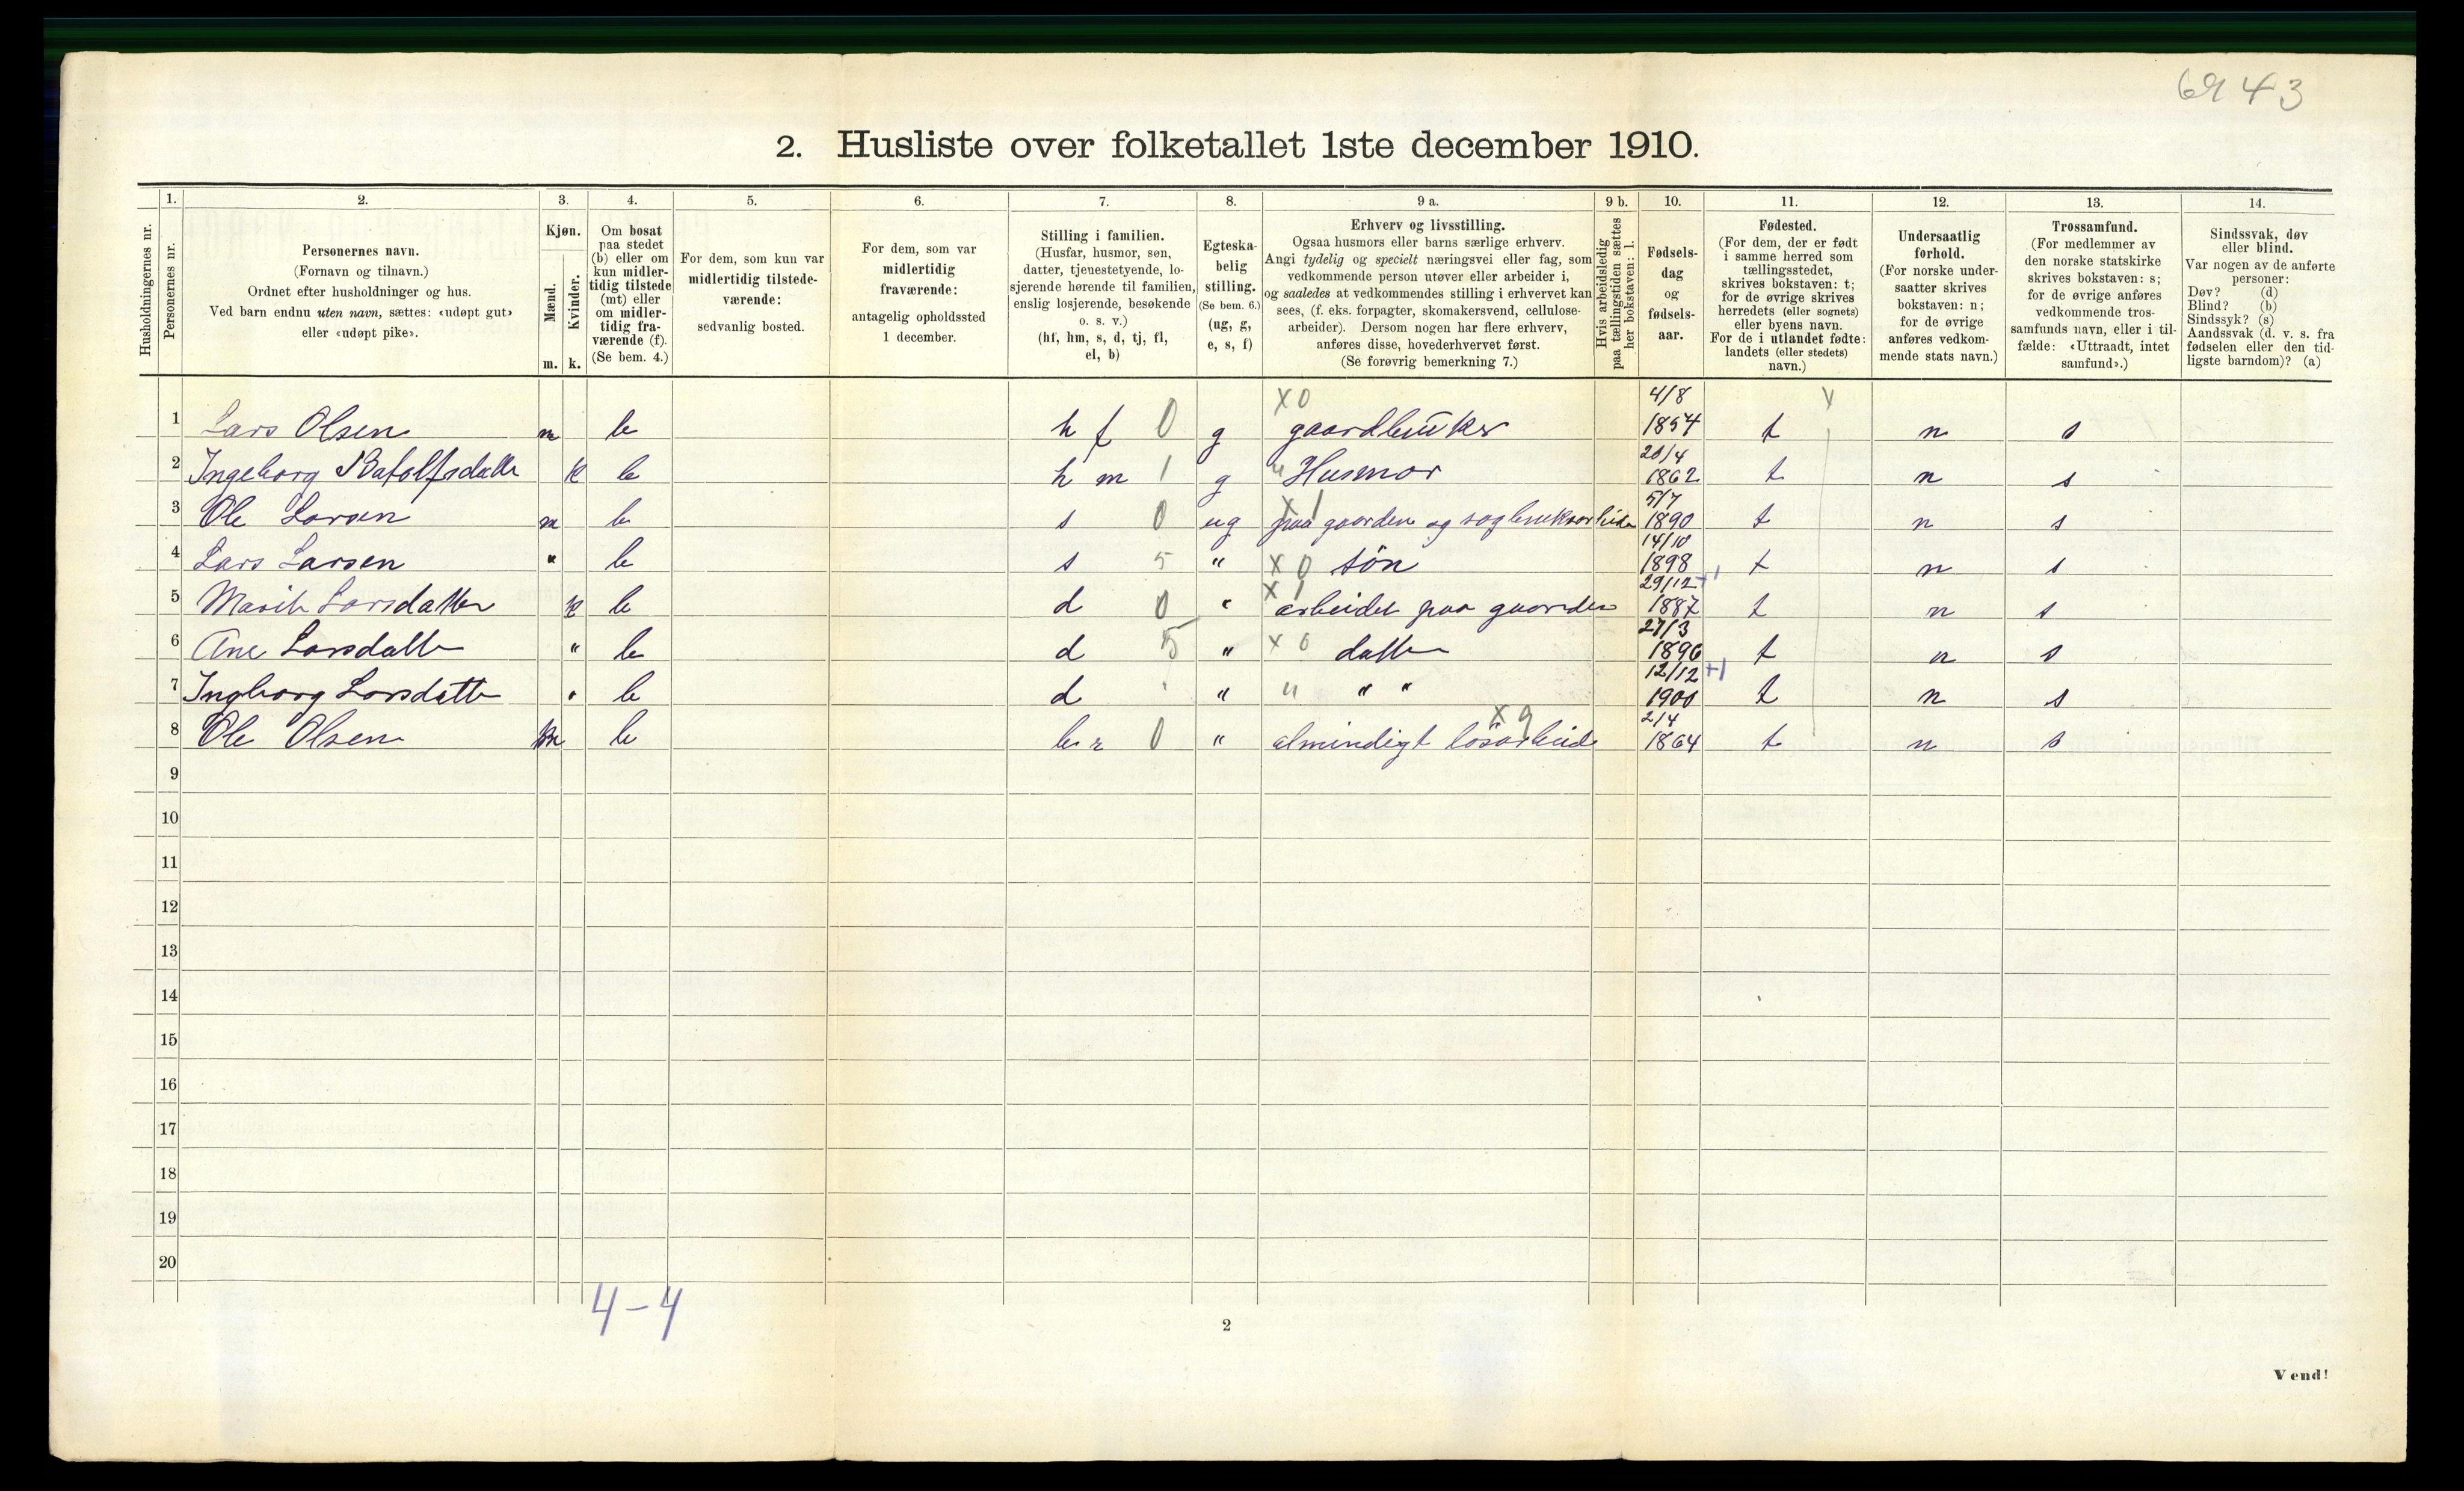 6943
2. Husliste over folketallet 1ste december 1910.
Husholdningernes nr.
1.
Personernes nr.
2.
Personernes navn.
(Fornavn og tilnavn.)
Ordnet efter husholdninger og hus.
Ved barn endnu uten navn, sættes: «udøpt gut»
eller «udøpt pike».
3.
Kjøn.
Mænd.
m.
Kvinder.
k.
4.
Om bosat
paa stedet
(b) eller om
kun midler-
tidig tilstede
(mt) eller
om midler-
tidig fra-
værende (f).
(Se bem. 4.)
5.
For dem, som kun var
midlertidig tilstede-
værende:
sedvanlig bosted.
6.
For dem, som var
midlertidig
fraværende:
antagelig opholdssted
1 december.
7.
Stilling i familien.
(Husfar, husmor, søn,
datter, tjenestetyende, lo-
sjerende hørende til familien,
enslig losjerende, besøkende
o. s. v.)
(hf, hm, s, d, tj, fl,
el, b)
8.
Egteska-
belig
stilling.
(Se bem. 6.)
(ug, g,
e, s, f)
9 a.
Erhverv og livsstilling.
Ogsaa husmors eller barns særlige erhverv.
Angi tydelig og specielt næringsvei eller fag, som
vedkommende person utøver eller arbeider i,
og saaledes at vedkommendes stilling i erhvervet kan
sees, (f. eks. forpagter, skomakersvend, cellulose-
arbeider). Dersom nogen har flere erhverv,
anføres disse, hovederhvervet først.
(Se forøvrig bemerkning 7.)
9 b.
Hvis arbeidsledig
paa tællingstiden sættes
her bokstaven: l.
10.
Fødsels-
dag
og
fødsels-
aar.
11.
Fødested.
(For dem, der er født
i samme herred som
tællingsstedet,
skrives bokstaven: t;
for de øvrige skrives
herredets (eller sognets)
eller byens navn.
For de i utlandet fødte:
landets (eller stedets)
navn.)
12.
Undersaatlig
forhold.
(For norske under-
saatter skrives
bokstaven: n;
for de øvrige
anføres vedkom-
mende stats navn.)
13.
Trossamfund.
(For medlemmer av
den norske statskirke
skrives bokstaven: s;
for de øvrige anføres
vedkommende tros-
samfunds navn, eller i til-
fælde: «Uttraadt, intet
samfund».)
14.
Sindssvak, døv
eller blind.
Var nogen av de anførte
personer:
Døv? (d)
Blind? (b)
Sindssyk? (s)
Aandssvak (d. v. s. fra
fødselen eller den tid-
ligste barndom)? (a)
1 Lars Olsen m b h f 0 g x 0 gaardbruker 4/8 1854 t n s
2 Ingeborg Batolfsdatter k b h m 1 g " Husmor 20/4 1862 t n s
3 Ole Larsen m b s 0 ug x 1 paa gaarden og sagbruksarbeide 5/7 1890 t n s
4 Lars Larsen " b s 5 " x 0 søn 14/10 1898 t n s
5 Marit Larsdatter k b d 0 " x 1 arbeidet paa gaarden 29/12 +1 1887 t n s
6 Ane Larsdatter " b d 5 " x 0 datter 27/3 1896 t n s
7 Ingborg Larsdatter " b d " " " " " 12/12 +1 1900 t n s
8 Ole Olsen m b br 0 " x 9 almindigt løsarbeide 2/4 1864 t n s
9
10
11
12
13
14
15
16
17
18
19
20
4-4
2
Vend!